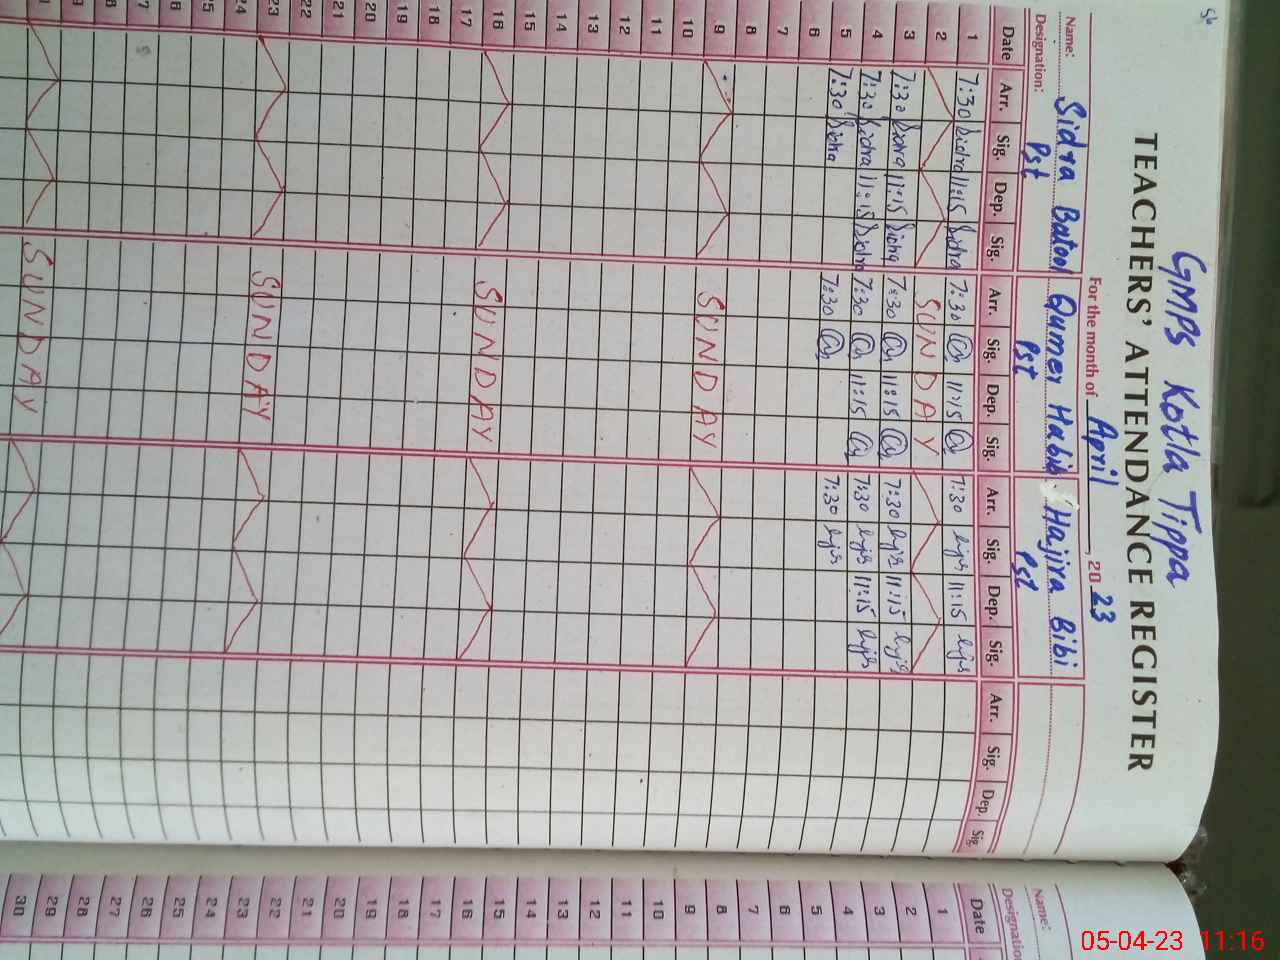 56
GMPS Kotla Tippa
TEACHERS' ATTENDANCE REGISTER
For the month of April, 2023
Name: Sidra Batool Qumer Habib Hajira Bibi
Designation: Pst Pst Pst
Date Arr. Sig. Dep. Sig. Arr. Sig. Dep. Sig. Arr. Sig. Dep. Sig. Arr. Sig. Dep. Sig.
1 7:30 Sidra 11:15 Sidra 7:30 11:15 7:30 11:15
2 SUNDAY
3 7:30 Sidra 11:15 Sidra 7:30 11:15 7:30 11:15
4 7:30 Sidra 11:15 Sidra 7:30 11:15 7:30 11:15
5 7:30 Sidra 7:30 7:30
6
7
8
9 SUNDAY
10
11
12
13
14
15
16 SUNDAY
17
18
19
20
21
22
23 SUNDAY
24
25
SUNDAY
Name:
Designation
Date
1
2
3
4
5
6
7
8
9
10
11
12
13
14
15
16
17
18
19
20
21
22
23
24
25
26
27
28
29
30
05-04-23 11:16